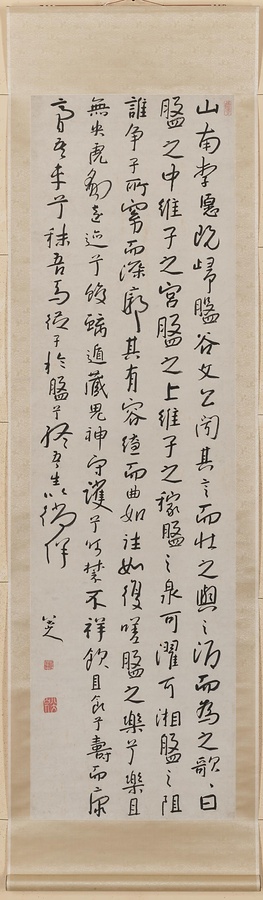 山南李愿既歸盤谷文公聞其言而壯之與之酒而為之歌曰
盤之中維子之宮盤之上維子之稼盤之泉可濯可湘盤之阻
誰爭子所窈而深廓其有容繚而曲如往如復嗟盤之樂兮樂且
無央虎豹遠迹兮蛟螭遁藏鬼神守護兮呵禁不祥飲且食兮壽而康
膏吾車兮秣吾馬從子於盤兮終吾生以徜徉
八大山人